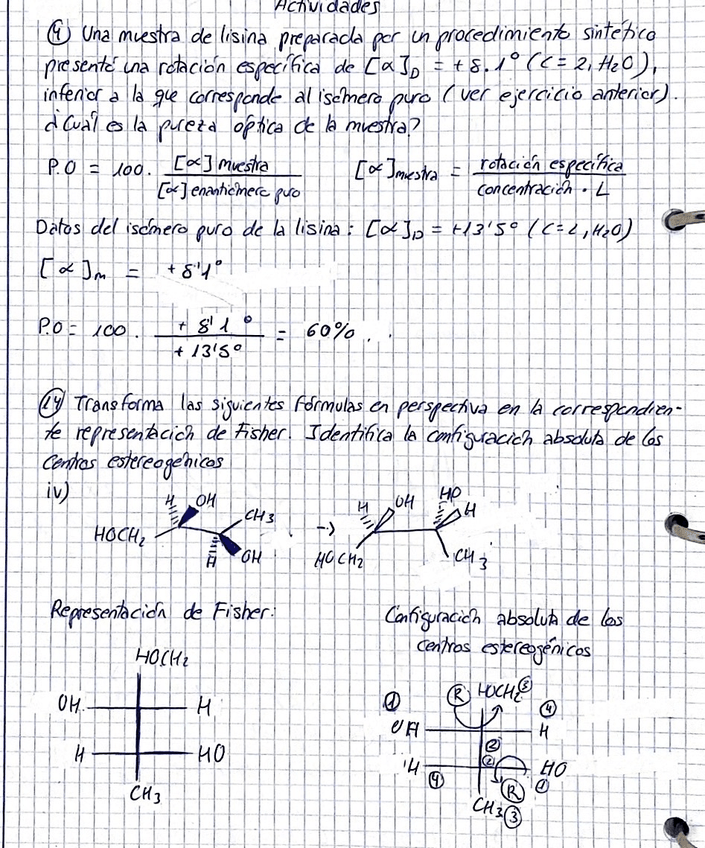 Actividades
④ Una muestra de lisina preparada por un procedimiento sintético
presentó una rotación específica de [α]D = +8.1° (C = 2, H₂O),
inferior a la que corresponde al isómero puro (ver ejercicio anterior).
¿Cuál es la pureza óptica de la muestra?
P.O = 100 · [α] muestra / [α] enantiómero puro    [α] muestra = rotación específica / concentración · L
Datos del isómero puro de la lisina: [α]D = +13'5° (C=2, H₂O)
[α]m = +8'1°
P.O = 100 · +8'1° / +13'5° = 60% . .
⑭ Transforma las siguientes fórmulas en perspectiva en la correspondien-
te representación de Fisher. Identifica la configuración absoluta de los
centros estereogénicos
iv)
H OH CH₃ → H OH HO H
HOCH₂ H OH HOCH₂ CH₃
Representación de Fisher:    Configuración absoluta de los
centros estereogénicos
HOCH₂
OH H
H HO
CH₃
① Ⓡ HOCH₂ ③ ④
OH H
② ②
H ④ HO ①
Ⓡ
CH₃ ③